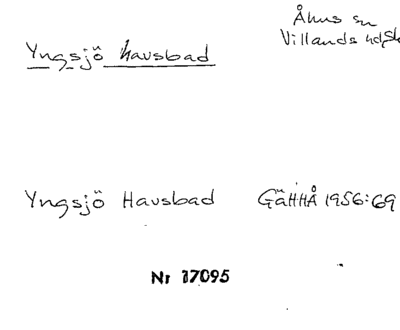 Åhus sn
Yngsjö havsbad Villands hd, Sk
Yngsjö Havsbad GäHHÅ 1956:69
Nr 17095